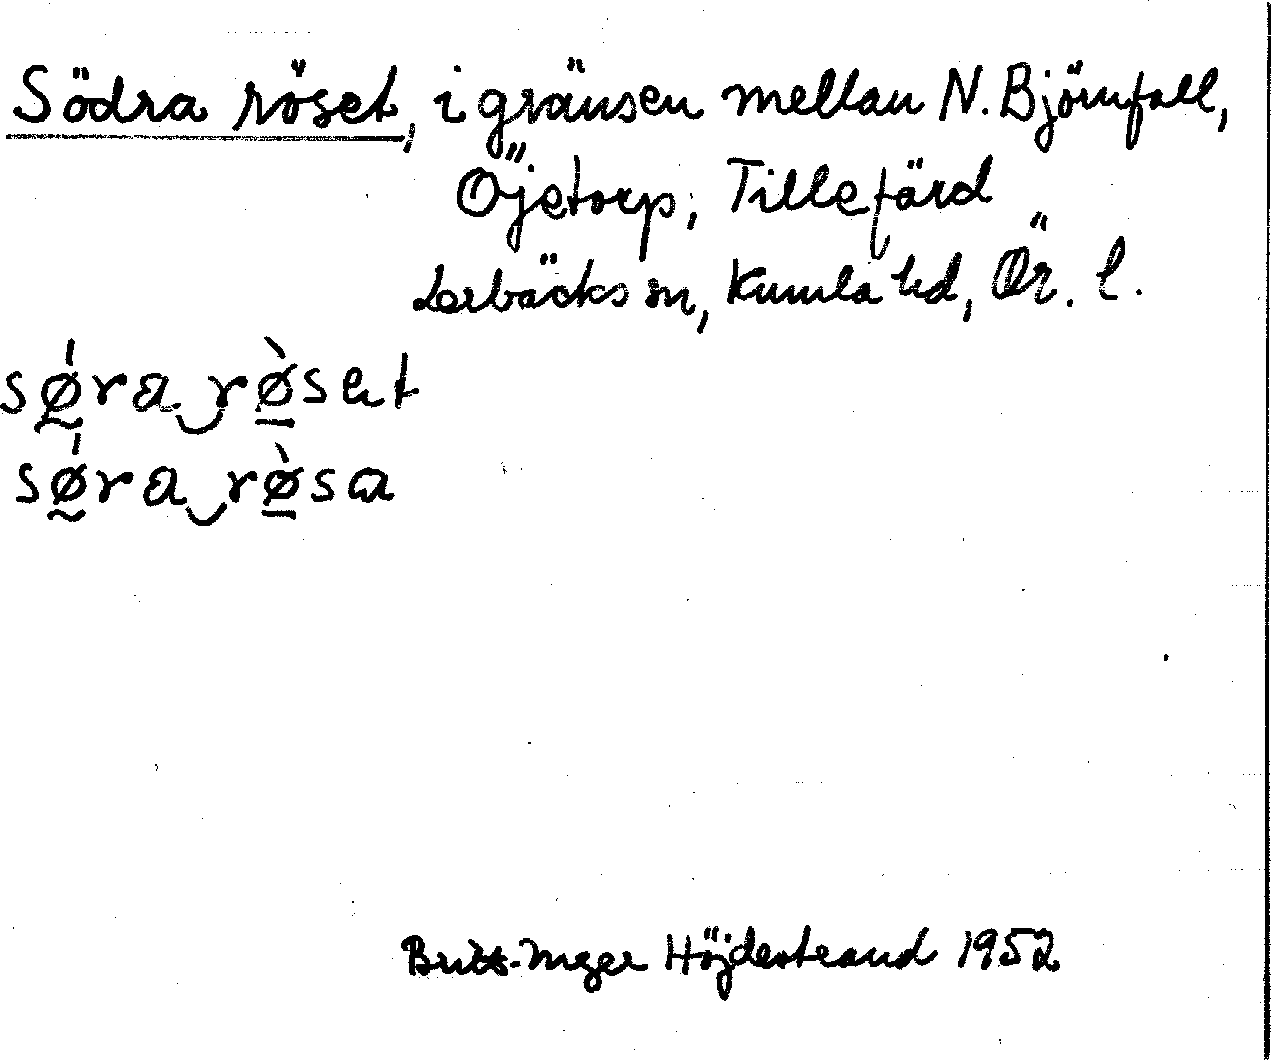 Södra röset, i gränsen mellan N. Björnfall,
Öjetorp, Tillefärd
Lerbäcks sn, Kumla hd, Ör. l.
sǿ̰ra‿rø̠̀sət
sǿ̰ra‿rø̠̀sa
Britt-Inger Höjdestrand 1952